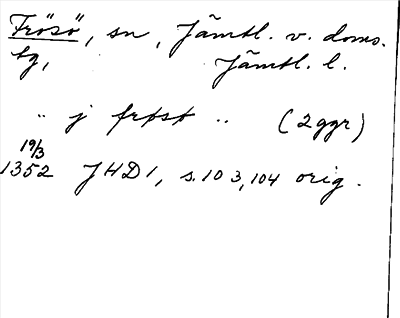 Frösö, sn, Jämtl. v. doms.
tg, Jämtl. l.
" j frøsø " (2 ggr)
19/3
1352 JHD 1, s. 103, 104 orig.